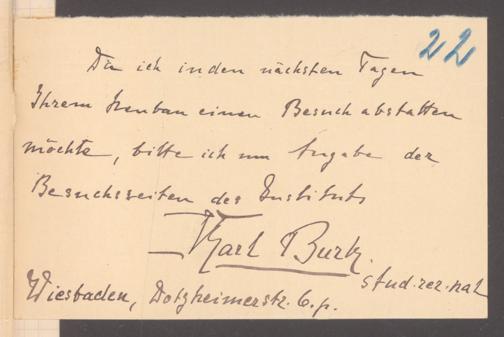 22
Da ich in den nächsten Tagen
Ihrem Neubau einen Besuch abstatten
möchte, bitte ich um Angabe der
Besuchszeiten des Instituts
Karl Burk.
stud. rer. nat
Wiesbaden, Dotzheimerstr. 6. p.